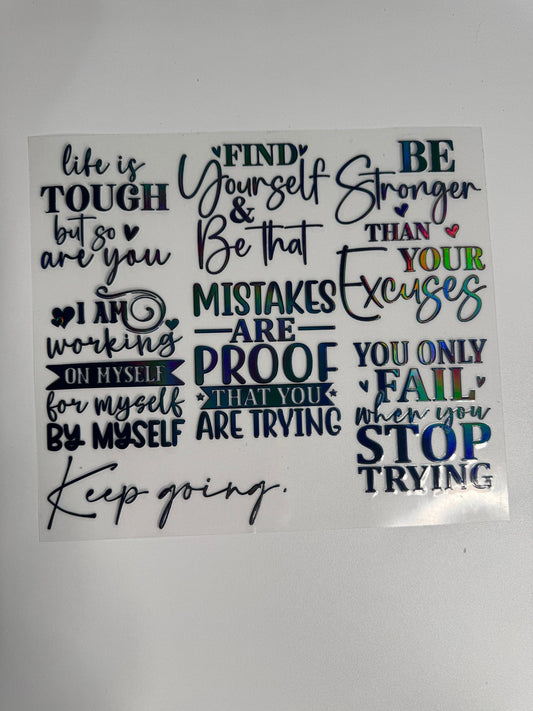 life is
TOUGH
but so
are you
FIND
Yourself
&
Be that
BE
Stronger
THAN
YOUR
Excuses
I AM
working
ON MYSELF
for myself
BY MYSELF
MISTAKES
ARE
PROOF
THAT YOU
ARE TRYING
YOU ONLY
FAIL
when you
STOP
TRYING
Keep going.